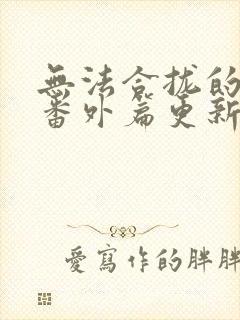 無法合拢的
番外篇更新
愛寫作的胖胖